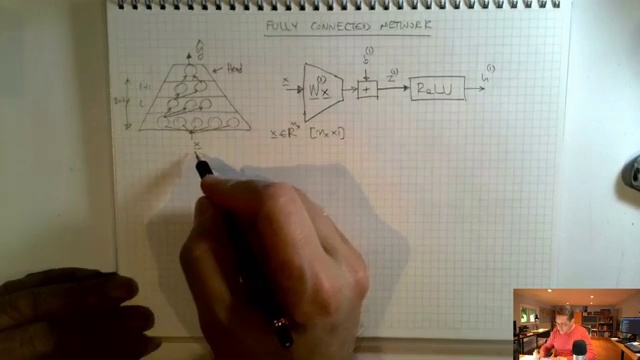 FULLY CONNECTED NETWORK
ŷ
Head
L+1
L
x
x
W⁽¹⁾x
b⁽¹⁾
+
z⁽¹⁾
ReLU
h⁽¹⁾
x ∈ R^nx [nx × 1]